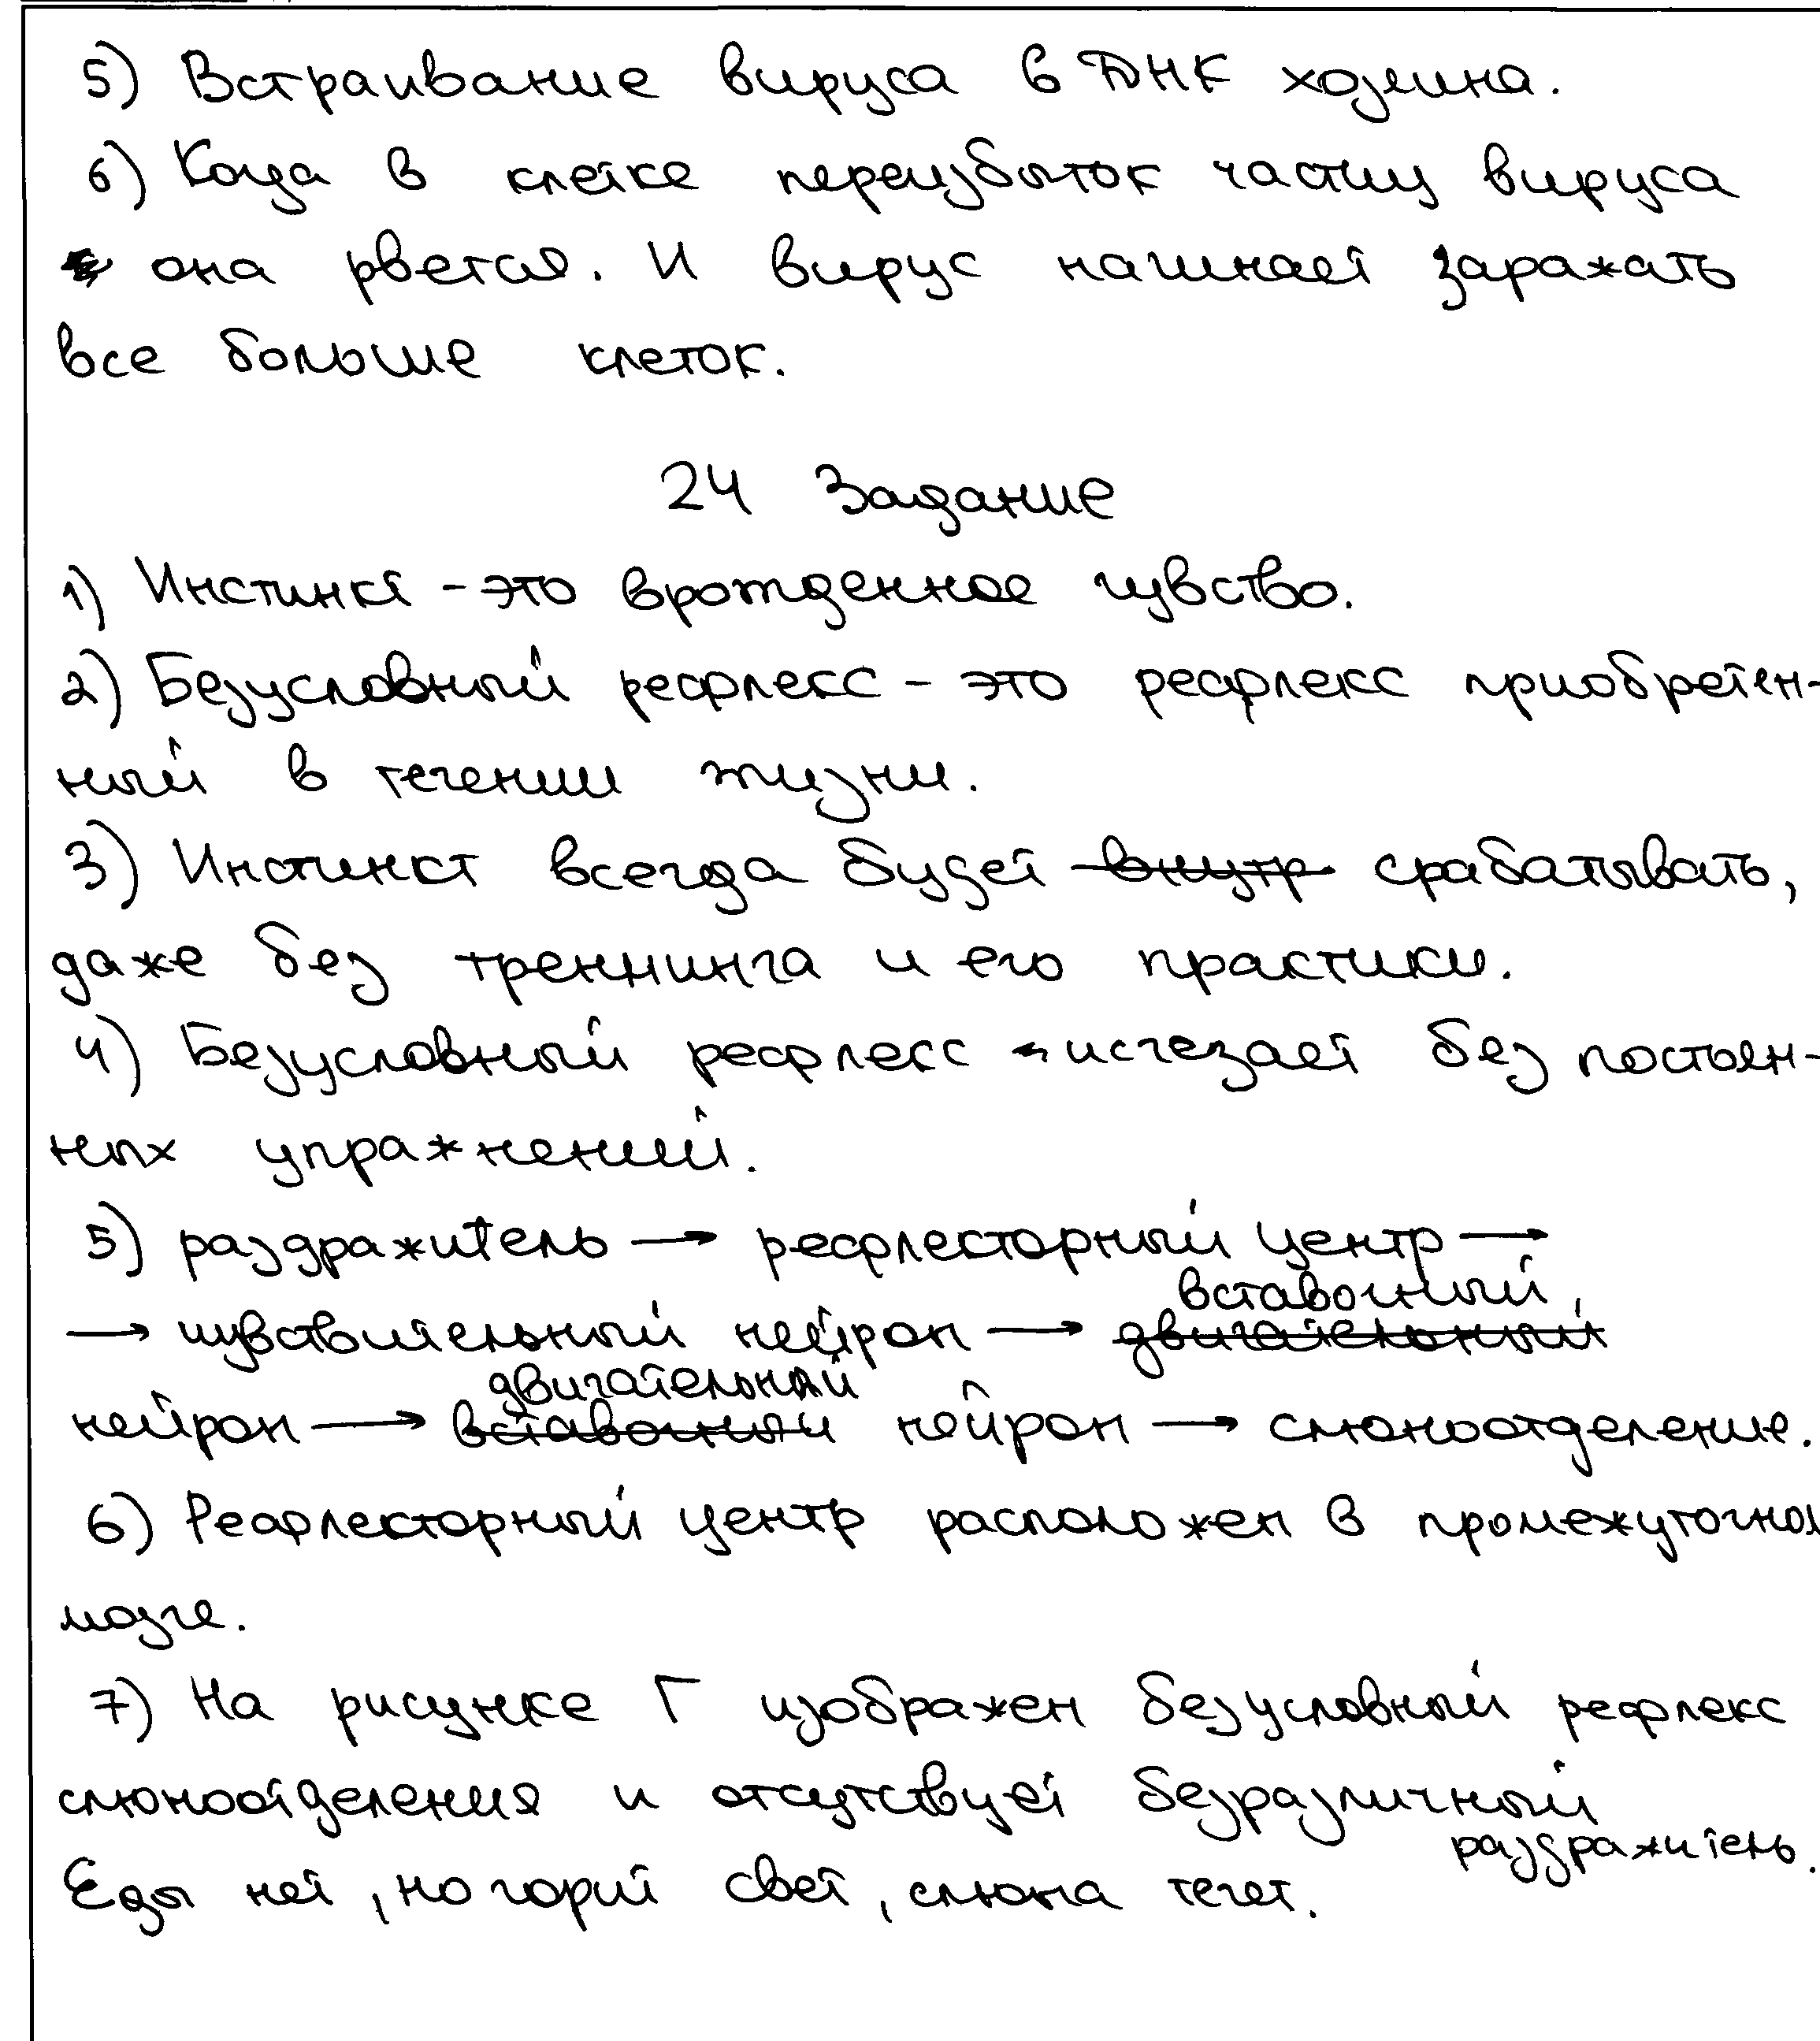 5) Встраивание вируса в ДНК хозяина.
6) Когда в клетке переизбыток частиц вируса
она рвется. И вирус начинает заражать
все больше клеток.
24 Задание
1) Инстинкт - это врожденное чувство.
2) Безусловный рефлекс - это рефлекс приобретен-
ный в течении жизни.
3) Инстинкт всегда будет внутр срабатывать,
даже без треннинга и его практики.
4) Безусловный рефлекс исчезает без постоян-
ных упражнений.
5) раздражитель → рефлесторный центр →
вставочный
→ чувствительный нейрон → двигательный
двигательный
нейрон → вставочный нейрон → слюноотделение.
6) Рефлесторный центр расположен в промежуточном
мозге.
7) На рисунке Г изображен безусловный рефлекс
слюноотделения и отсутствует безразличный
раздражитель.
Еды нет, но горит свет, слюна течет.